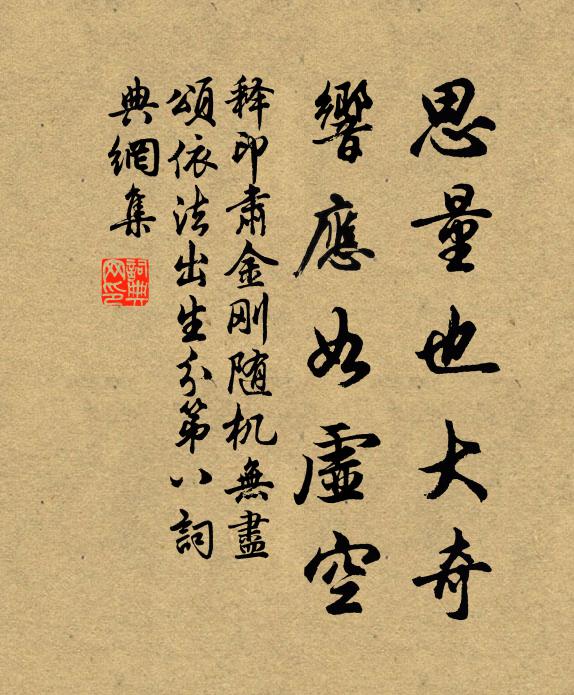 思量也大奇
響應如虛空
释印肅金刚随机無盡
頌依法出生分第八詞
典網集
詞典网印